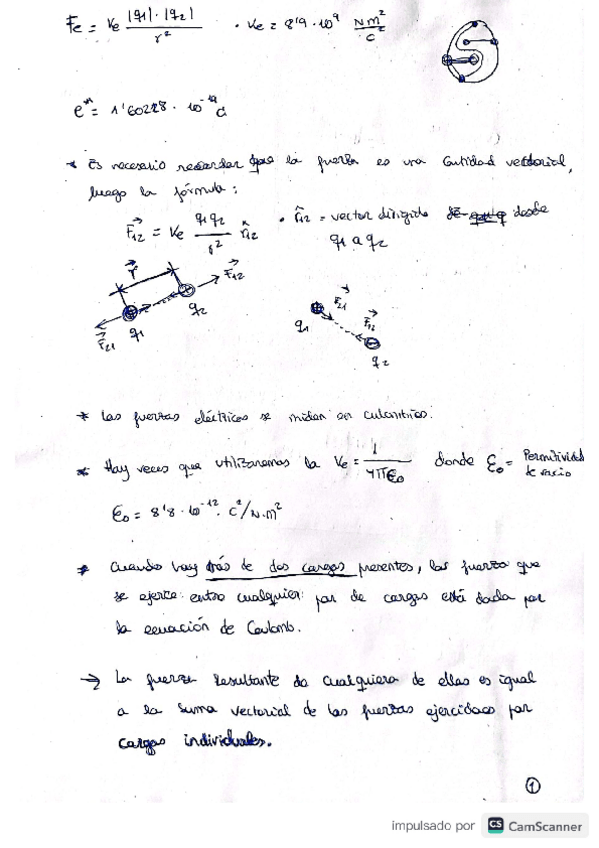 Fe = Ke |q1|·|q2| / r² · Ke = 8'9 · 10⁹ Nm²/c²
e⁻ = 1'60228 · 10⁻¹⁹ C
* Es necesario recordar que la fuerza es una cantidad vectorial,
luego la fórmula:
F⃗12 = Ke q1 q2 / r² r̂12 · r̂12 = vector dirigido desde
q1 a q2
r⃗ F⃗12
q1 q2 F⃗21
q1 F⃗21 F⃗12
q2
* Las fuerzas eléctricas se miden en culombios.
* Hay veces que utilizaremos la Ke = 1 / 4πε0 donde ε0 = Permitividad
de vacio
ε0 = 8'8 · 10⁻¹² · C²/N·m²
* Cuando hay más de dos cargas presentes, las fuerza que
se ejerce entre cualquier par de cargas está dada por
la ecuación de Coulomb.
→ La fuerza resultante de cualquiera de ellas es igual
a la suma vectorial de las fuerzas ejercidas por
cargas individuales.
1
impulsado por CS CamScanner